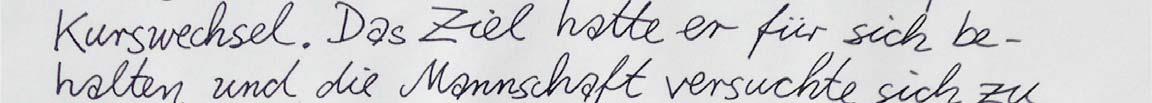 Kurswechsel. Das Ziel hatte er für sich be-
halten und die Mannschaft versuchte sich zu